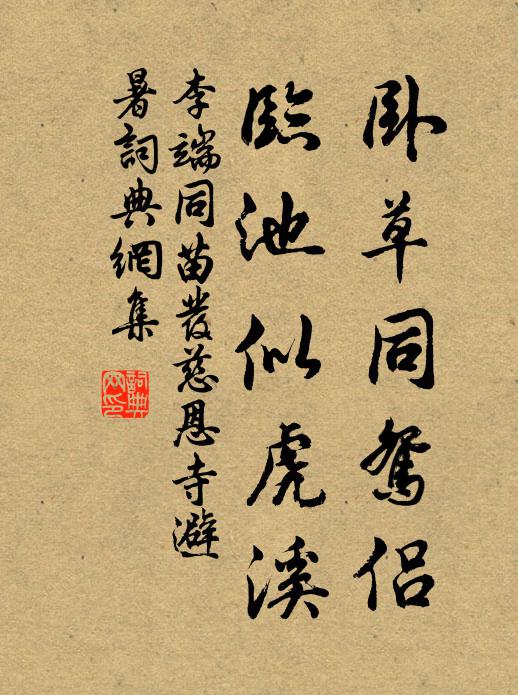 卧草同鴛侶
臨池似虎溪
李端同苗發慈恩寺避
暑詞典網集
詞典
网印